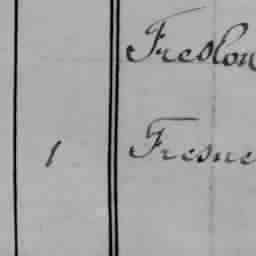 Freslon
1 Fresne